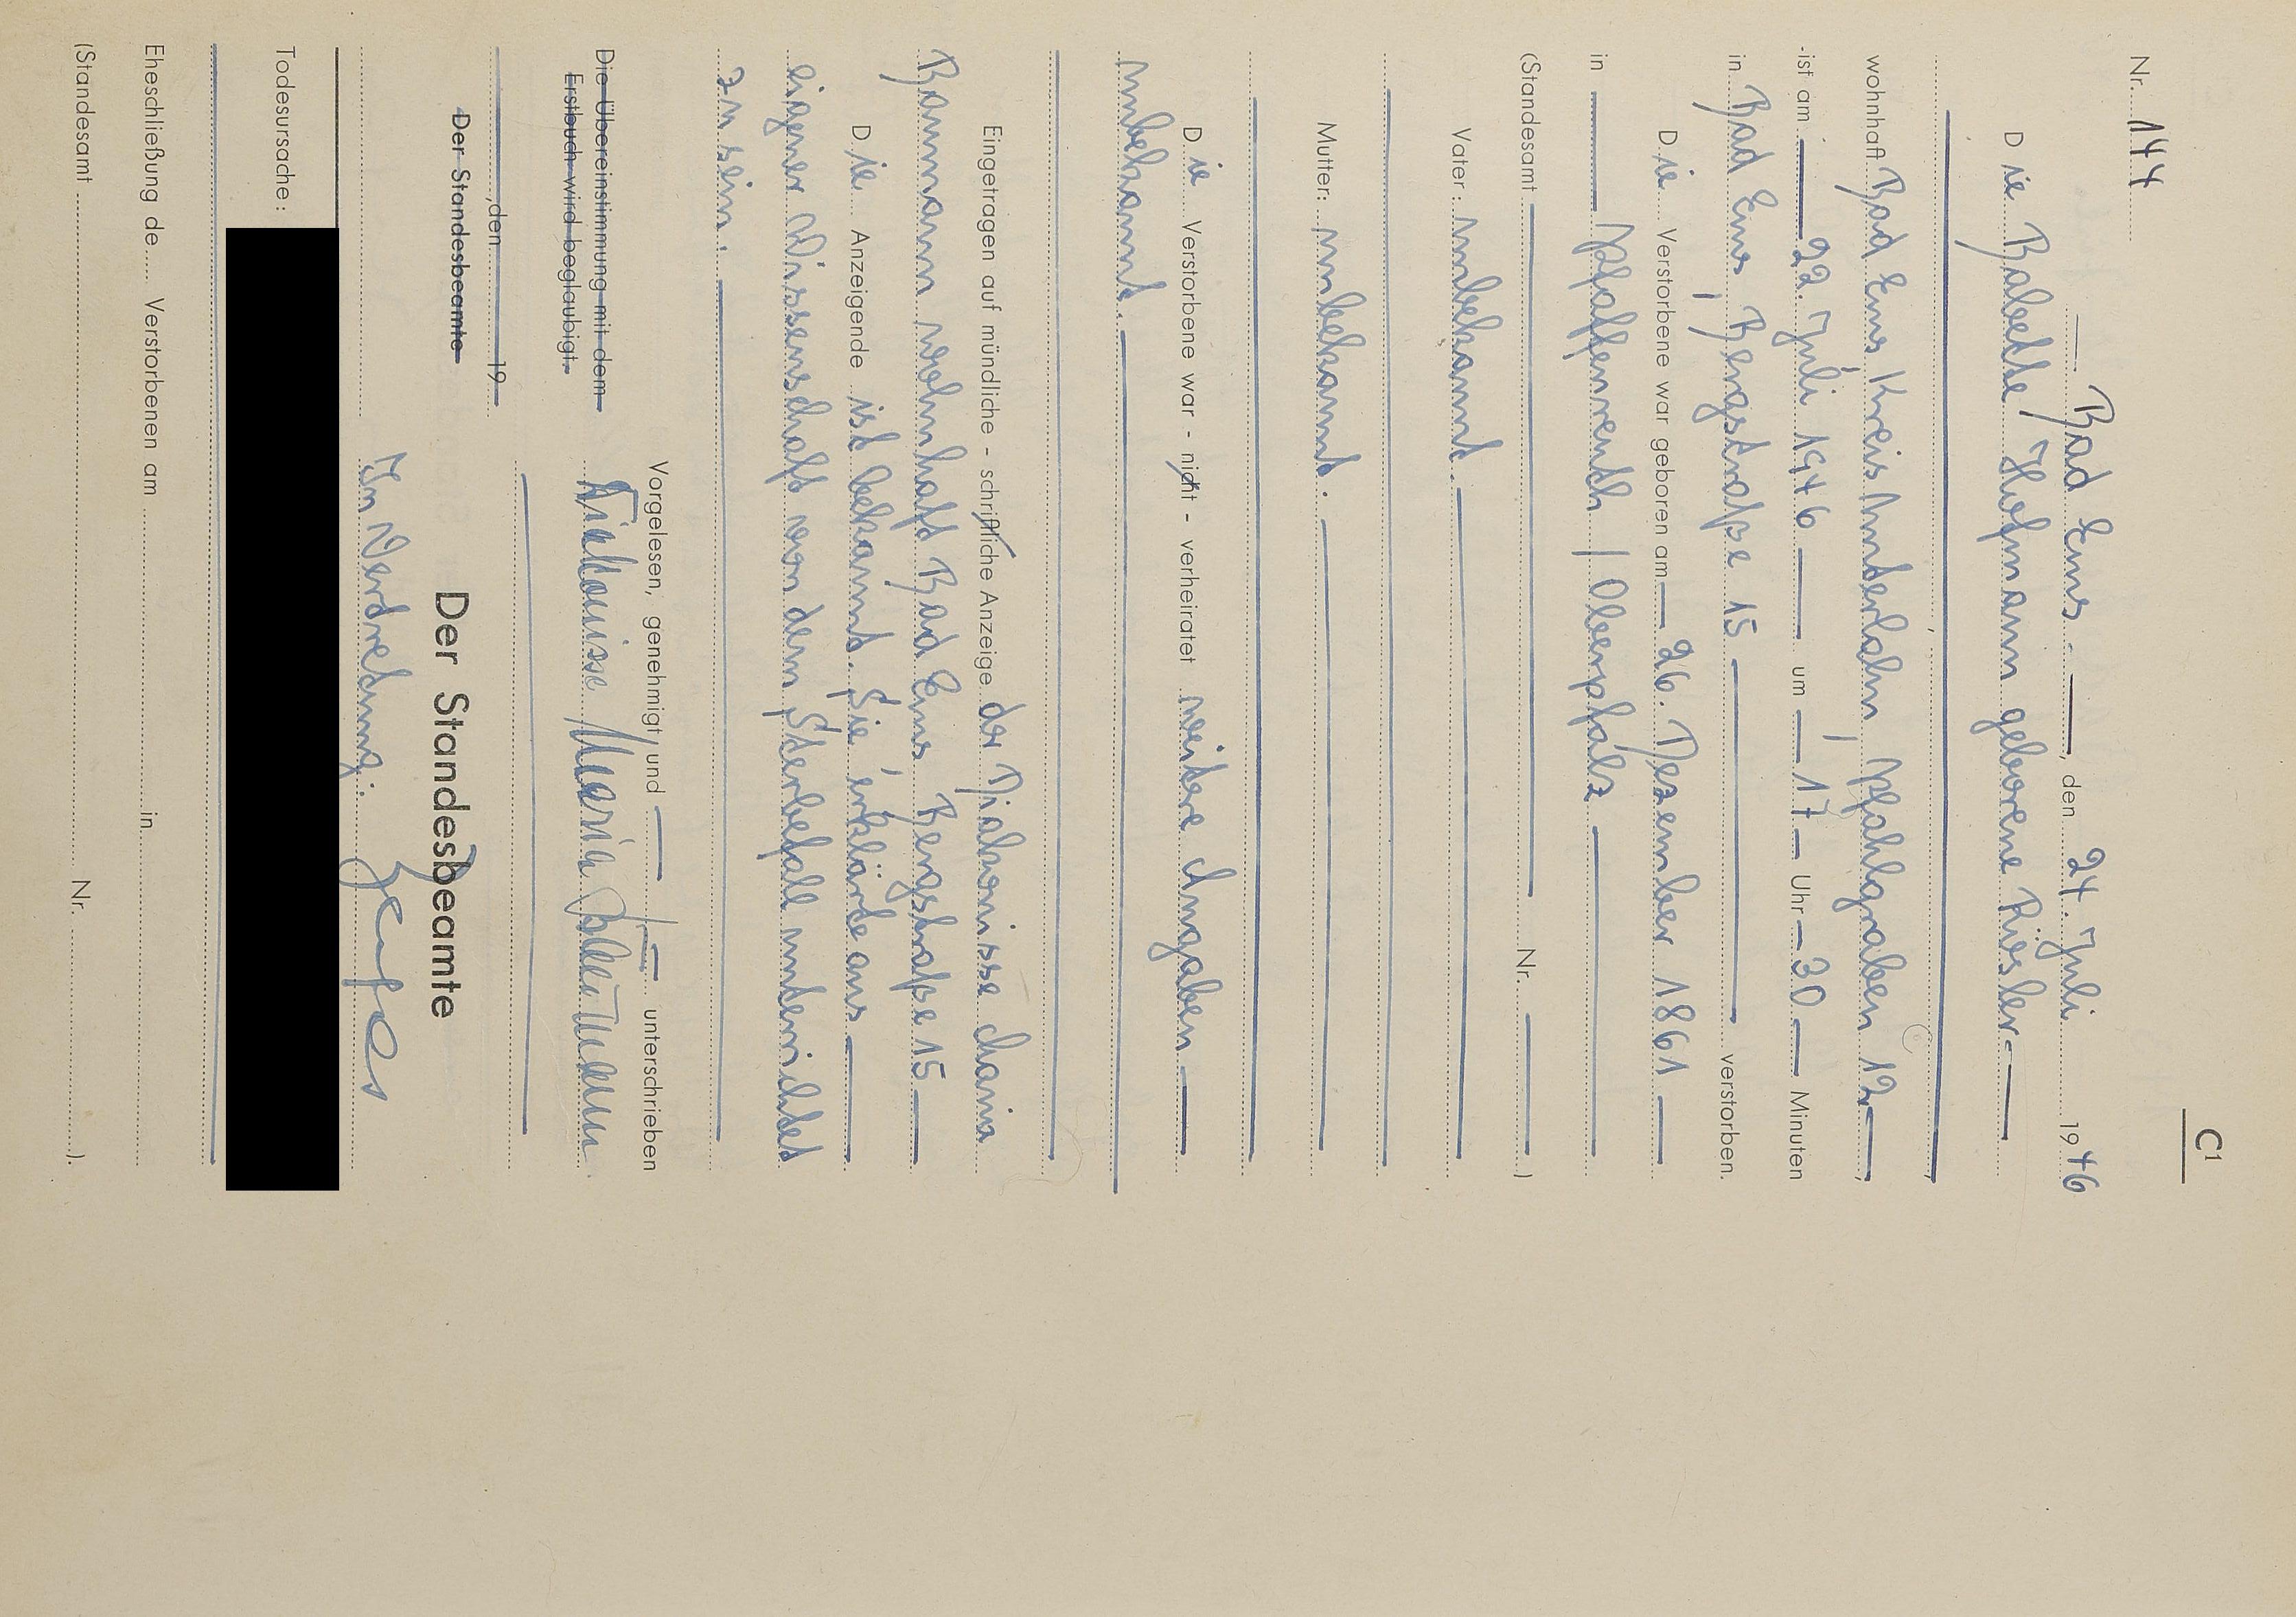 C1
Nr. 144
Bad Ems - —, den 24. Juli 1946
Die Babette Hofmann geborene Riesler —
wohnhaft Bad Ems, Kreis Unterlahn, Pfahlgraben 12 —,
ist am — 22. Juli 1946 — um — 17 — Uhr — 30 — Minuten
in Bad Ems, Bergstraße 15 — verstorben.
Die Verstorbene war geboren am — 26. Dezember 1861 —
in — Pfaffenreuth / Oberpfalz —
(Standesamt — Nr. — )
Vater: unbekannt. —
Mutter: unbekannt. —
Die Verstorbene war - nicht - verheiratet weitere Angaben —
unbekannt. —
Eingetragen auf mündliche - schriftliche Anzeige der Diakonisse Maria
Baumann wohnhaft Bad Ems, Bergstraße 15 —
Die Anzeigende ist bekannt. Sie erklärte aus —
eigener Wissenschaft von dem Sterbefall unterrichtet
zu sein. —
Vorgelesen, genehmigt und — unterschrieben
Die Übereinstimmung mit dem
Erstbuch wird beglaubigt.
Diakonisse Maria Baumann
, den 19
Der Standesbeamte
Der Standesbeamte
In Vertretung:
Todesursache:
Eheschließung de Verstorbenen am in
(Standesamt Nr. ).